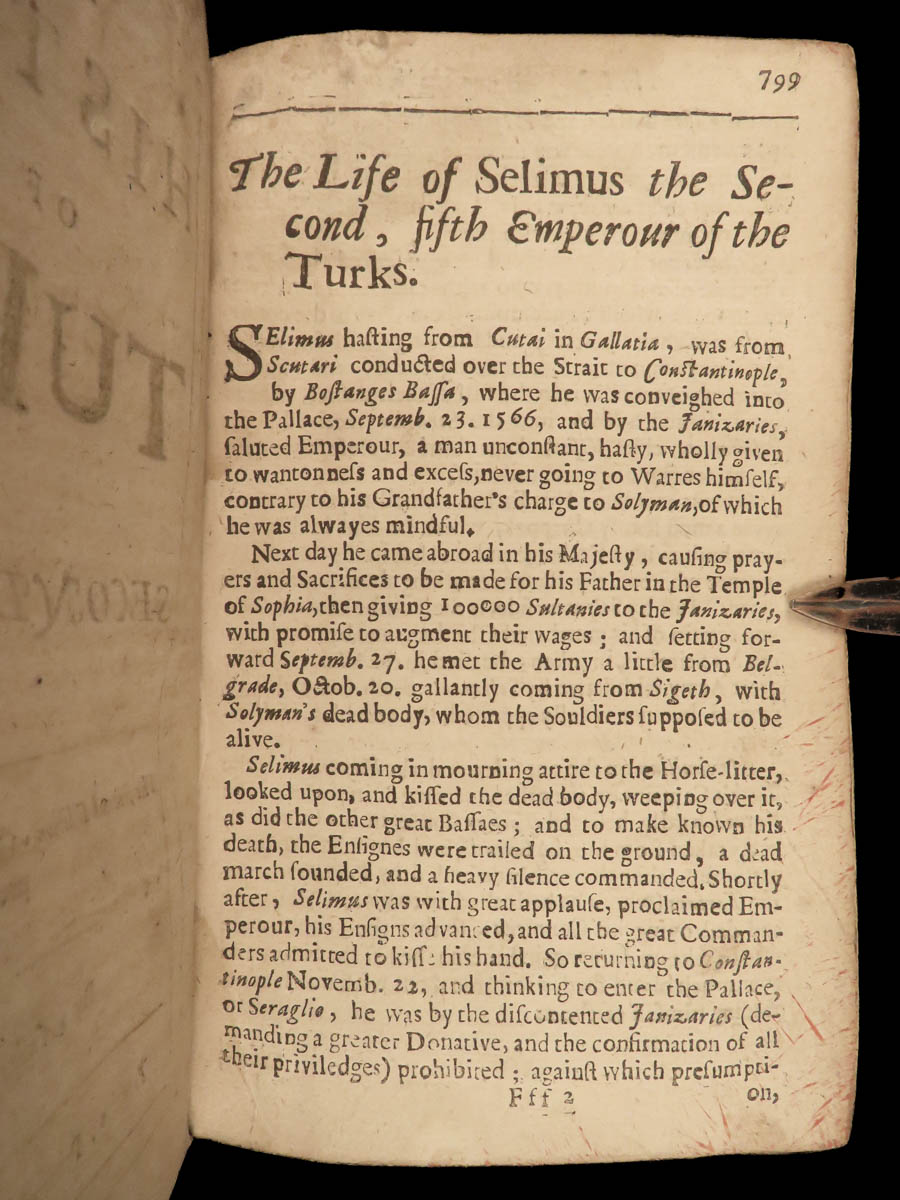 799
The Life of Selimus the Se-
cond, fifth Emperour of the
Turks.
SElimus haſting from Cutai in Gallatia, was from
Scutari conducted over the Strait to Conſtantinople,
by Boſtanges Baſſa, where he was conveighed into
the Pallace, Septemb. 23. 1566, and by the Janizaries,
ſaluted Emperour, a man unconſtant, haſty, wholly given
to wantonneſs and exceſs, never going to Warres himſelf,
contrary to his Grandfather's charge to Solyman, of which
he was alwayes mindful.
Next day he came abroad in his Majeſty, cauſing pray-
ers and Sacrifices to be made for his Father in the Temple
of Sophia, then giving 100000 Sultanies to the Janizaries,
with promiſe to augment their wages; and ſetting for-
ward Septemb. 27. he met the Army a little from Bel-
grade, Octob. 20. gallantly coming from Sigeth, with
Solyman's dead body, whom the Souldiers ſuppoſed to be
alive.
Selimus coming in mourning attire to the Horſe-litter,
looked upon, and kiſſed the dead body, weeping over it,
as did the other great Baſſaes; and to make known his
death, the Enſignes were trailed on the ground, a dead
march ſounded, and a heavy ſilence commanded. Shortly
after, Selimus was with great applauſe, proclaimed Em-
perour, his Enſigns advanced, and all the great Comman-
ders admitted to kiſſe his hand. So returning to Conſtan-
tinople Novemb. 22, and thinking to enter the Pallace,
or Seraglio, he was by the diſcontented Janizaries (de-
manding a greater Donative, and the confirmation of all
their priviledges) prohibited; againſt which preſumpti-
Fff 2 on,